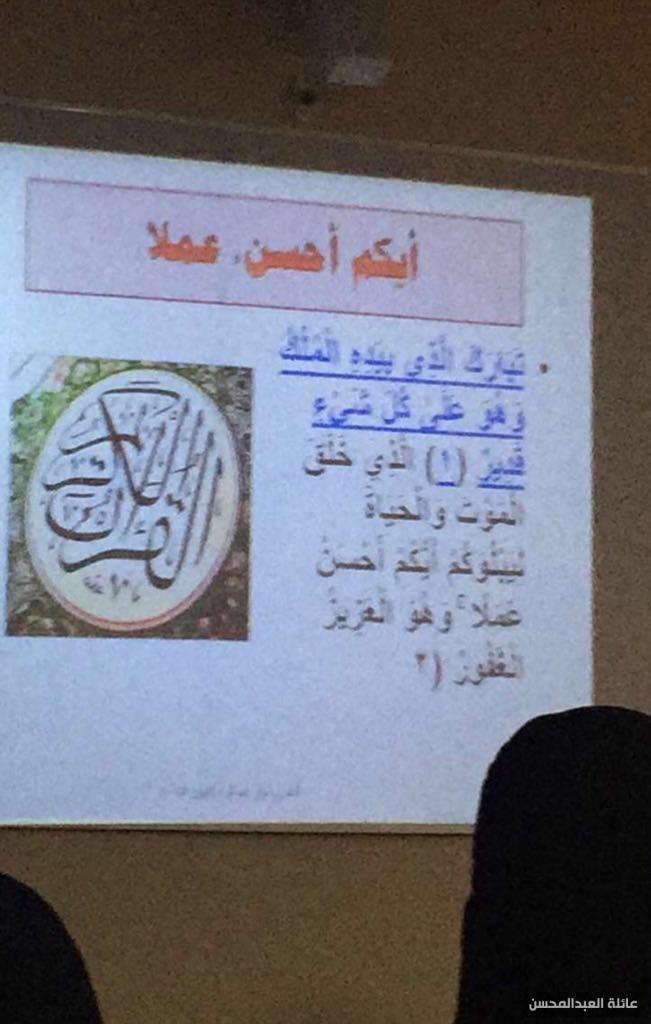 أيكم أحسن عملا
تَبَارَكَ الَّذِي بِيَدِهِ الْمُلْكُ
وَهُوَ عَلَىٰ كُلِّ شَيْءٍ
قَدِيرٌ (١) الَّذِي خَلَقَ
الْمَوْتَ وَالْحَيَاةَ
لِيَبْلُوَكُمْ أَيُّكُمْ أَحْسَنُ
عَمَلًا ۚ وَهُوَ الْعَزِيزُ
الْغَفُورُ (٢
القرآن الكريم
عائلة العبدالمحسن